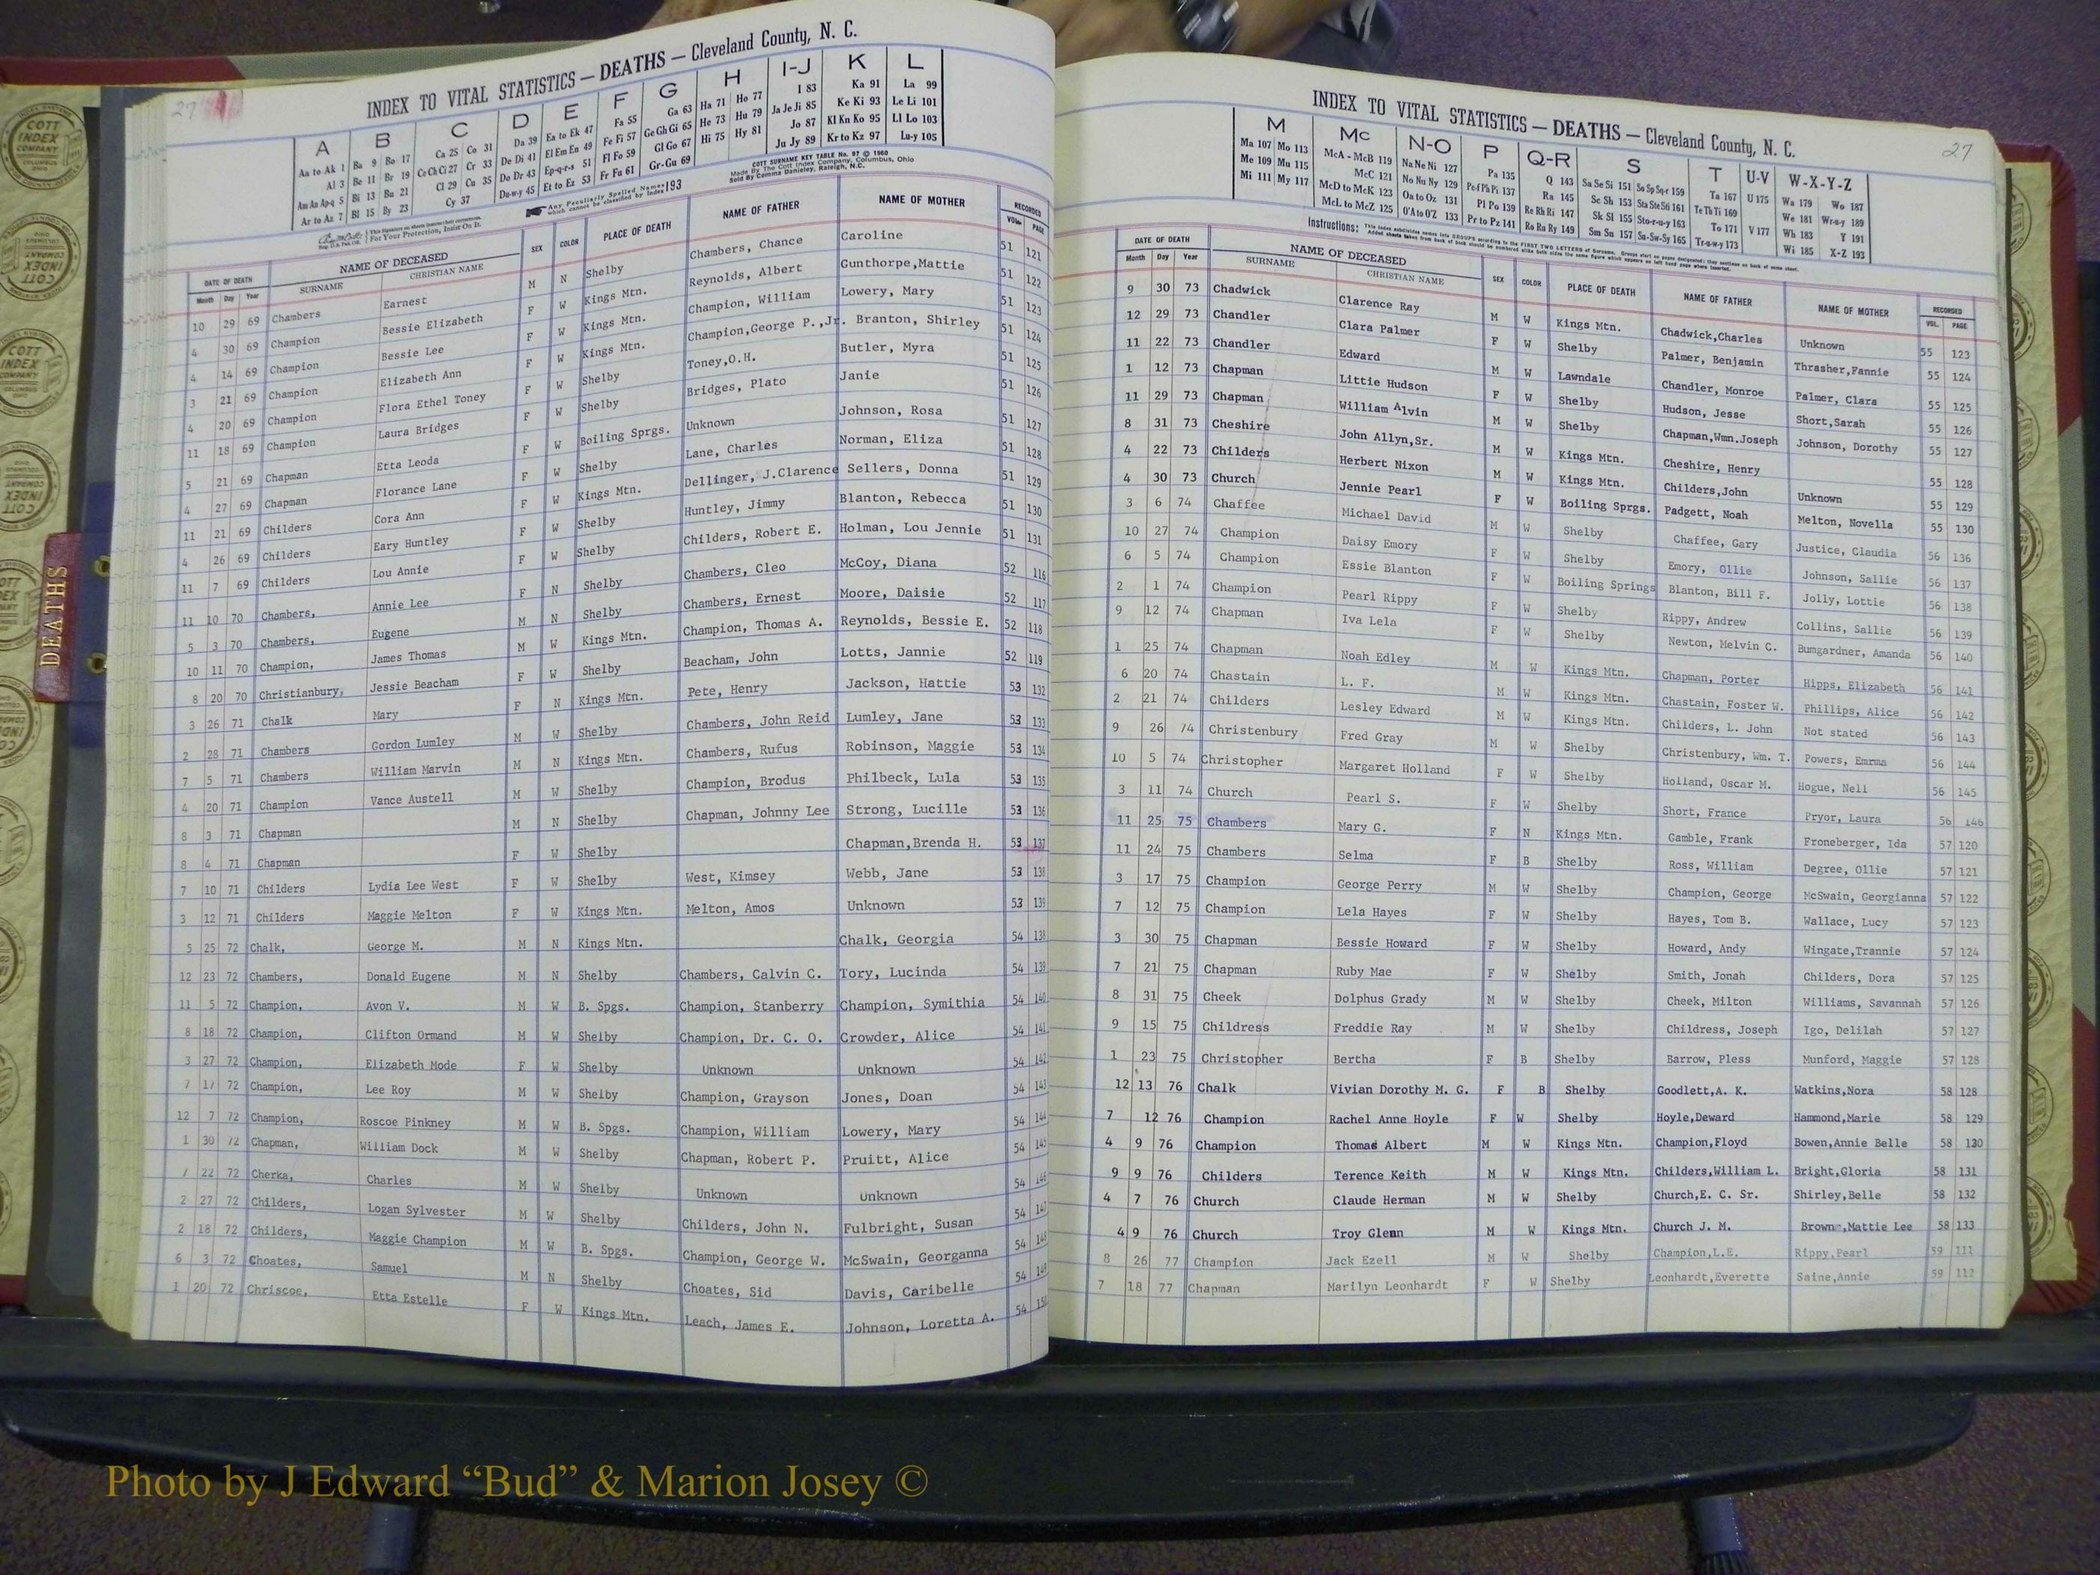 27
INDEX TO VITAL STATISTICS — DEATHS — Cleveland County, N. C.
A B C D E F G H I-J K L
Aa to Ak 1 Ba 9 Bo 17 Ca 25 Co 31 Da 39 Ea to Ek 47 Fa 55 Ga 63 Ha 71 Ho 77 I 83 Ka 91 La 99
Al 3 Be 11 Br 19 Ce Ch Ci 27 Cr 33 De Di 41 El Em En 49 Fe Fi 57 Ge Gh Gi 65 He 73 Hu 79 Ja Je Ji 85 Ke Ki 93 Le Li 101
Am An Ap-q 5 Bi 13 Bu 21 Cl 29 Cu 35 Do Dr 43 Ep-q-r-s 51 Fl Fo 59 Gl Go 67 Hi 75 Hy 81 Jo 87 Kl Kn Ko 95 Ll Lo 103
Ar to Az 7 Bl 15 By 23 Cy 37 Du-w-y 45 Et to Ez 53 Fr Fu 61 Gr-Gu 69 Ju Jy 89 Kr to Kz 97 Lu-y 105
For Your Protection, Insist On It.
Any Peculiarly Spelled Names which cannot be classified by Index 193
COTT SURNAME KEY TABLE No. 97 © 1960
Made By The Cott Index Company, Columbus, Ohio
Sold By Comma Danieley, Raleigh, N.C.
DATE OF DEATH NAME OF DECEASED SEX COLOR PLACE OF DEATH NAME OF FATHER NAME OF MOTHER RECORDED
Month Day Year SURNAME CHRISTIAN NAME VOL. PAGE
10 29 69 Chambers Earnest M N Shelby Chambers, Chance Caroline 51 121
4 30 69 Champion Bessie Elizabeth F W Kings Mtn. Reynolds, Albert Gunthorpe,Mattie 51 122
4 14 69 Champion Bessie Lee F W Kings Mtn. Champion, William Lowery, Mary 51 123
3 21 69 Champion Elizabeth Ann F W Kings Mtn. Champion,George P.,Jr. Branton, Shirley 51 124
4 20 69 Champion Flora Ethel Toney F W Shelby Toney,O.H. Butler, Myra 51 125
11 18 69 Champion Laura Bridges F W Shelby Bridges, Plato Janie 51 126
5 21 69 Chapman Etta Leoda F W Boiling Sprgs. Unknown Johnson, Rosa 51 127
4 27 69 Chapman Florance Lane F W Shelby Lane, Charles Norman, Eliza 51 128
11 21 69 Childers Cora Ann F W Kings Mtn. Dellinger, J.Clarence Sellers, Donna 51 129
4 26 69 Childers Eary Huntley F W Shelby Huntley, Jimmy Blanton, Rebecca 51 130
11 7 69 Childers Lou Annie F W Shelby Childers, Robert E. Holman, Lou Jennie 51 131
11 10 70 Chambers, Annie Lee F N Shelby Chambers, Cleo McCoy, Diana 52 116
5 3 70 Chambers, Eugene M N Shelby Chambers, Ernest Moore, Daisie 52 117
10 11 70 Champion, James Thomas M W Kings Mtn. Champion, Thomas A. Reynolds, Bessie E. 52 118
8 20 70 Christianbury, Jessie Beacham F W Shelby Beacham, John Lotts, Jannie 52 119
3 26 71 Chalk Mary F N Kings Mtn. Pete, Henry Jackson, Hattie 53 132
2 28 71 Chambers Gordon Lumley M W Shelby Chambers, John Reid Lumley, Jane 53 133
7 5 71 Chambers William Marvin M N Kings Mtn. Chambers, Rufus Robinson, Maggie 53 134
4 20 71 Champion Vance Austell M W Shelby Champion, Brodus Philbeck, Lula 53 135
8 3 71 Chapman M N Shelby Chapman, Johnny Lee Strong, Lucille 53 136
8 4 71 Chapman F W Shelby Chapman,Brenda H. 53 137
7 10 71 Childers Lydia Lee West F W Shelby West, Kimsey Webb, Jane 53 138
3 12 71 Childers Maggie Melton F W Kings Mtn. Melton, Amos Unknown 53 139
5 25 72 Chalk, George M. M N Kings Mtn. Chalk, Georgia 54 138
12 23 72 Chambers, Donald Eugene M N Shelby Chambers, Calvin C. Tory, Lucinda 54 139
11 5 72 Champion, Avon V. M W B. Spgs. Champion, Stanberry Champion, Symithia 54 140
8 18 72 Champion, Clifton Ormand M W Shelby Champion, Dr. C. O. Crowder, Alice 54 141
3 27 72 Champion, Elizabeth Mode F W Shelby Unknown Unknown 54 142
7 17 72 Champion, Lee Roy M W Shelby Champion, Grayson Jones, Doan 54 143
12 7 72 Champion, Roscoe Pinkney M W B. Spgs. Champion, William Lowery, Mary 54 144
1 30 72 Chapman, William Dock M W Shelby Chapman, Robert P. Pruitt, Alice 54 145
7 22 72 Cherka, Charles M W Shelby Unknown Unknown 54 146
2 27 72 Childers, Logan Sylvester M W Shelby Childers, John N. Fulbright, Susan 54 147
2 18 72 Childers, Maggie Champion M W B. Spgs. Champion, George W. McSwain, Georganna 54 148
6 3 72 Choates, Samuel M N Shelby Choates, Sid Davis, Caribelle 54 149
1 20 72 Chriscoe, Etta Estelle F W Kings Mtn. Leach, James E. Johnson, Loretta A. 54 150
INDEX TO VITAL STATISTICS — DEATHS — Cleveland County, N. C.
27
M Mc N-O P Q-R S T U-V W-X-Y-Z
Ma 107 Mo 113 McA - McB 119 Na Ne Ni 127 Pa 135 Q 143 Sa Se Si 151 So Sp Sq-r 159 Ta 167 U 175 Wa 179 Wo 187
Me 109 Mu 115 McC 121 No Nu Ny 129 Pe-f Ph Pi 137 Ra 145 Sc Sh 153 Sta Ste Sti 161 Te Th Ti 169 We 181 Wr-u-y 189
Mi 111 My 117 McD to McK 123 Oa to Oz 131 Pl Po 139 Re Rh Ri 147 Sk Sl 155 Sto-r-u-y 163 To 171 V 177 Wh 183 Y 191
McL to McZ 125 O'A to O'Z 133 Pr to Pz 141 Ro Ru Ry 149 Sm Sn 157 Su-Sw-Sy 165 Tr-u-w-y 173 Wi 185 X-Z 193
Instructions:
DATE OF DEATH NAME OF DECEASED SEX COLOR PLACE OF DEATH NAME OF FATHER NAME OF MOTHER RECORDED
Month Day Year SURNAME CHRISTIAN NAME VOL. PAGE
9 30 73 Chadwick Clarence Ray M W Kings Mtn. Chadwick,Charles Unknown 55 123
12 29 73 Chandler Clara Palmer F W Shelby Palmer, Benjamin Thrasher,Fannie 55 124
11 22 73 Chandler Edward M W Lawndale Chandler, Monroe Palmer, Clara 55 125
1 12 73 Chapman Littie Hudson F W Shelby Hudson, Jesse Short,Sarah 55 126
11 29 73 Chapman William Alvin M W Shelby Chapman,Wmn.Joseph Johnson, Dorothy 55 127
8 31 73 Cheshire John Allyn,Sr. M W Kings Mtn. Cheshire, Henry 55 128
4 22 73 Childers Herbert Nixon M W Kings Mtn. Childers,John Unknown 55 129
4 30 73 Church Jennie Pearl F W Boiling Sprgs. Padgett, Noah Melton, Novella 55 130
3 6 74 Chaffee Michael David M W Shelby Chaffee, Gary Justice, Claudia 56 136
10 27 74 Champion Daisy Emory F W Shelby Emory, Ollie Johnson, Sallie 56 137
6 5 74 Champion Essie Blanton F W Boiling Springs Blanton, Bill F. Jolly, Lottie 56 138
2 1 74 Champion Pearl Rippy F W Shelby Rippy, Andrew Collins, Sallie 56 139
9 12 74 Chapman Iva Lela F W Shelby Newton, Melvin C. Bumgardner, Amanda 56 140
1 25 74 Chapman Noah Edley M W Kings Mtn. Chapman, Porter Hipps, Elizabeth 56 141
6 20 74 Chastain L. F. M W Kings Mtn. Chastain, Foster W. Phillips, Alice 56 142
2 21 74 Childers Lesley Edward M W Kings Mtn. Childers, L. John Not stated 56 143
9 26 74 Christenbury Fred Gray M W Shelby Christenbury, Wm. T. Powers, Emrma 56 144
10 5 74 Christopher Margaret Holland F W Shelby Holland, Oscar M. Hogue, Nell 56 145
3 11 74 Church Pearl S. F W Shelby Short, France Pryor, Laura 56 146
11 25 75 Chambers Mary G. F N Kings Mtn. Gamble, Frank Froneberger, Ida 57 120
11 24 75 Chambers Selma F B Shelby Ross, William Degree, Ollie 57 121
3 17 75 Champion George Perry M W Shelby Champion, George McSwain, Georgianna 57 122
7 12 75 Champion Lela Hayes F W Shelby Hayes, Tom B. Wallace, Lucy 57 123
3 30 75 Chapman Bessie Howard F W Shelby Howard, Andy Wingate,Trannie 57 124
7 21 75 Chapman Ruby Mae F W Shelby Smith, Jonah Childers, Dora 57 125
8 31 75 Cheek Dolphus Grady M W Shelby Cheek, Milton Williams, Savannah 57 126
9 15 75 Childress Freddie Ray M W Shelby Childress, Joseph Igo, Delilah 57 127
1 23 75 Christopher Bertha F B Shelby Barrow, Pless Munford, Maggie 57 128
12 13 76 Chalk Vivian Dorothy M. G. F B Shelby Goodlett,A. K. Watkins,Nora 58 128
7 12 76 Champion Rachel Anne Hoyle F W Shelby Hoyle,Deward Hammond,Marie 58 129
4 9 76 Champion Thomas Albert M W Kings Mtn. Champion,Floyd Bowen,Annie Belle 58 130
9 9 76 Childers Terence Keith M W Kings Mtn. Childers,William L. Bright,Gloria 58 131
4 7 76 Church Claude Herman M W Shelby Church,E. C. Sr. Shirley,Belle 58 132
4 9 76 Church Troy Glenn M W Kings Mtn. Church J. M. Brown,Mattie Lee 58 133
8 26 77 Champion Jack Ezell M W Shelby Champion,L.E. Rippy,Pearl 59 111
7 18 77 Chapman Marilyn Leonhardt F W Shelby Leonhardt,Everette Saine,Annie 59 112
DEATHS
COTT INDEX COMPANY COLUMBUS OHIO
Photo by J Edward “Bud” & Marion Josey ©